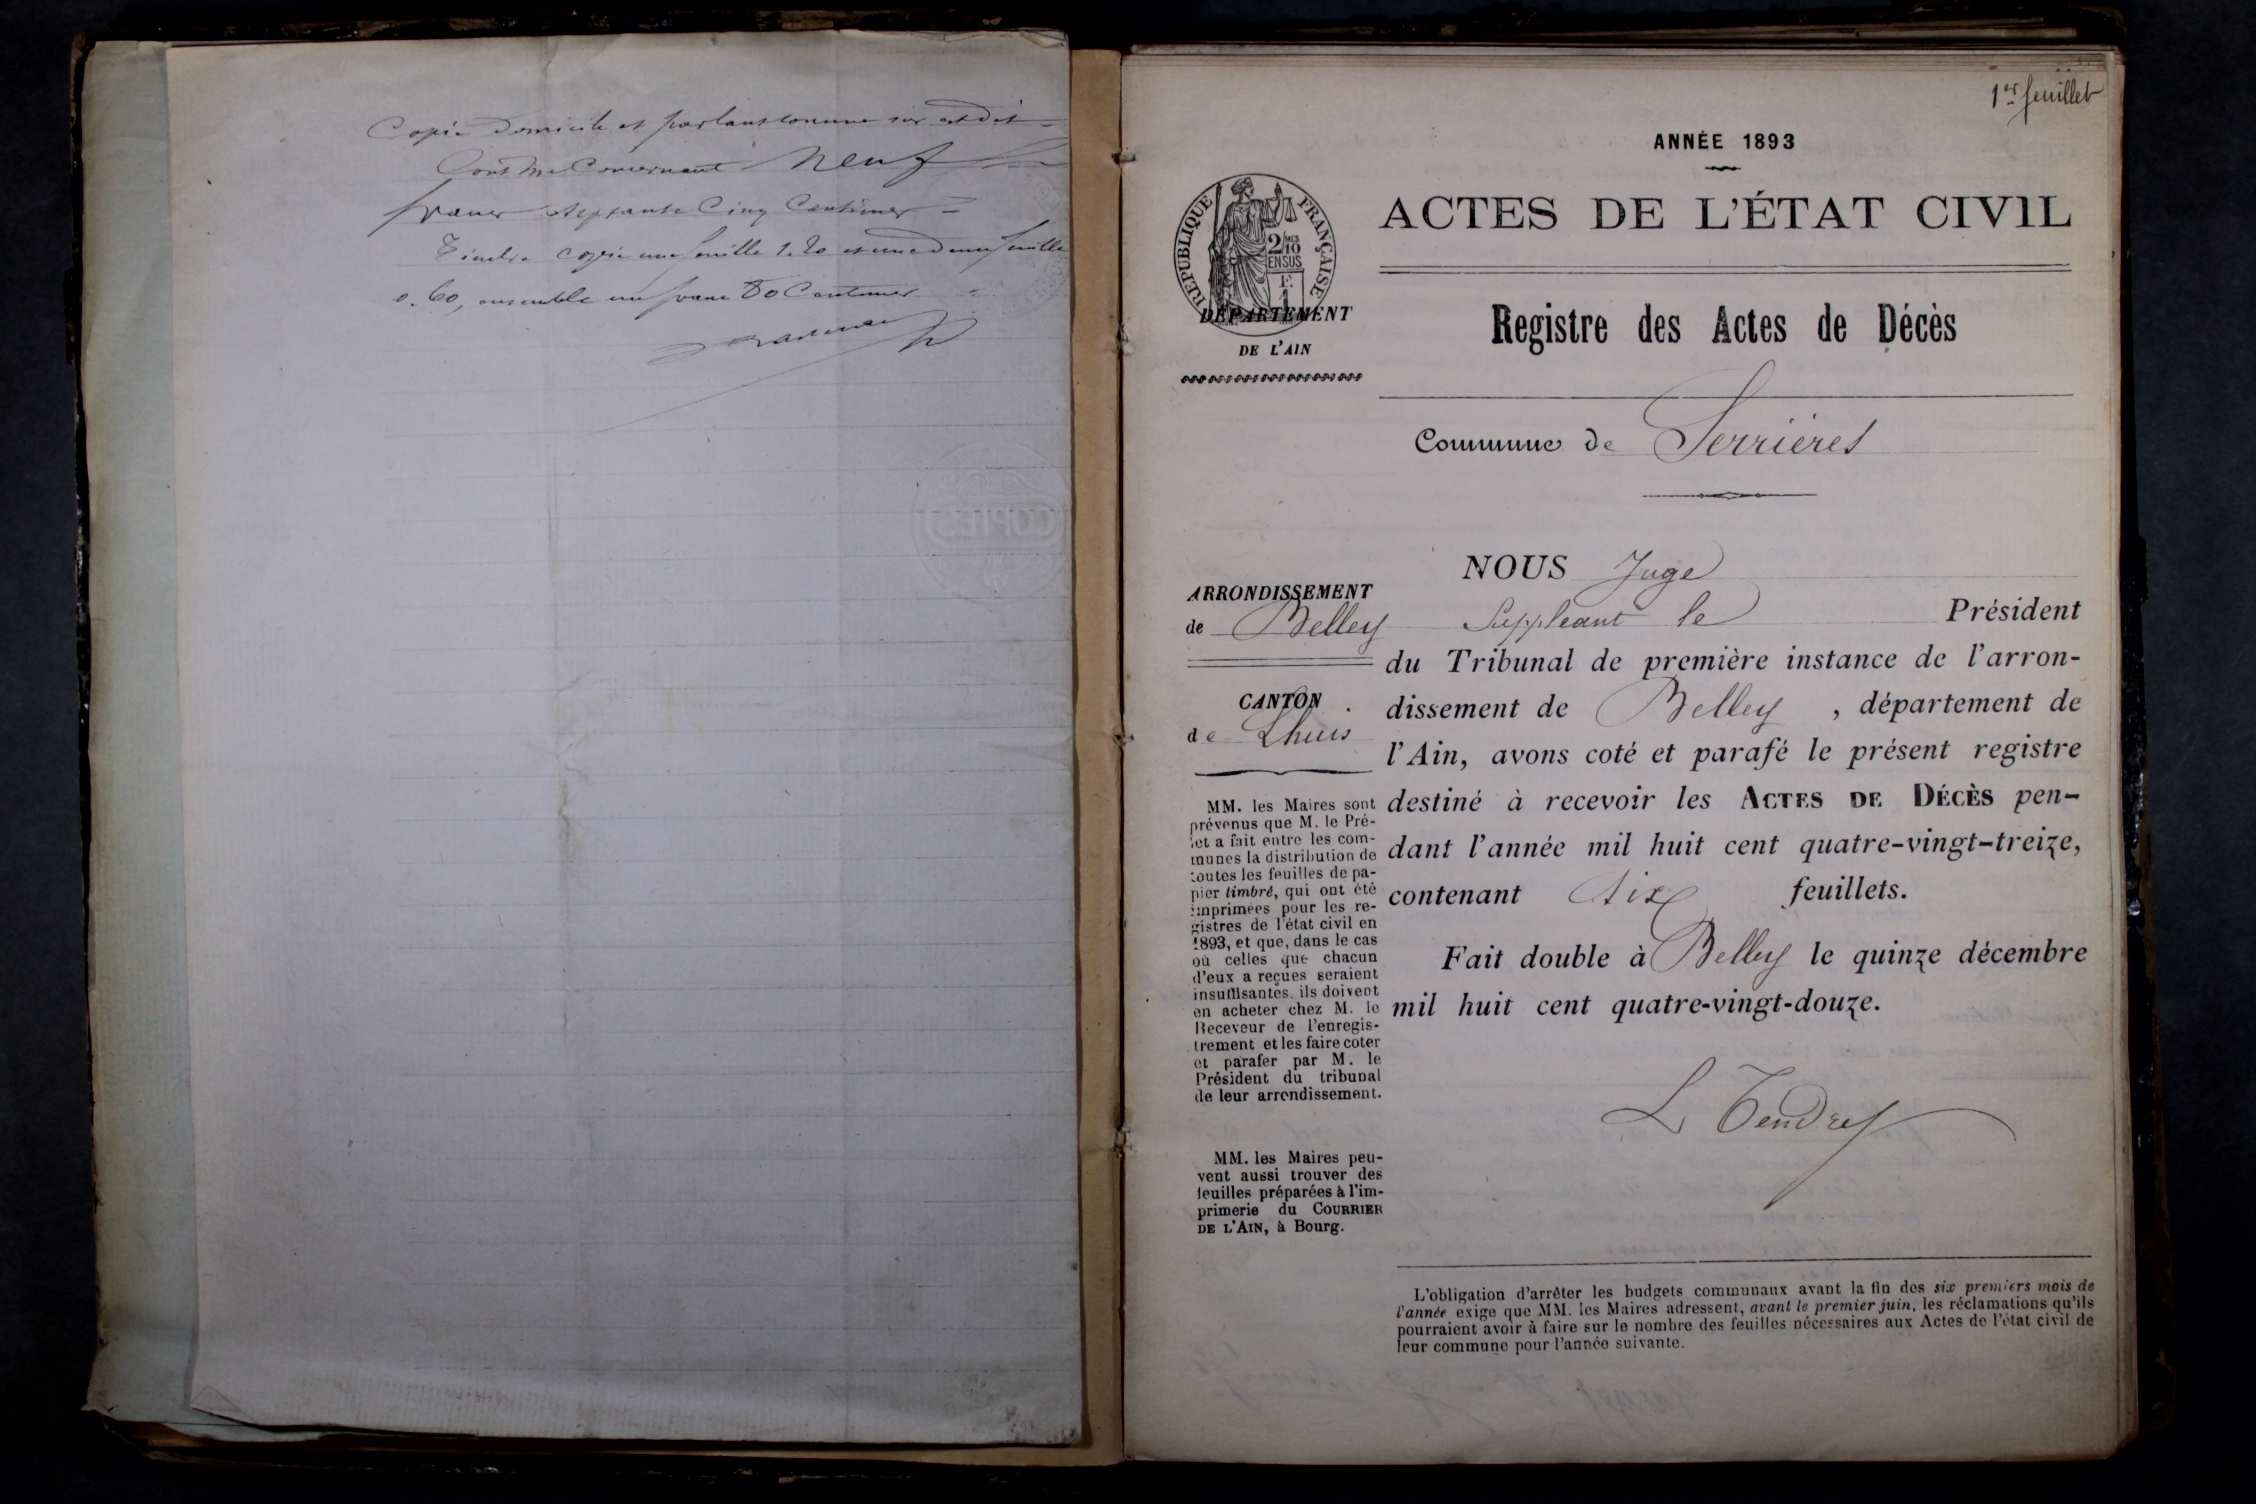 Copie domicile et parlant comme sus est dit
Cout Neuf
francs septante Cinq Centimes
Timbre copie une feuille 1.20 et une demi feuille
0.60, ensemble un franc 80 Centimes
COPIES
1er feuillet
ANNÉE 1893
ACTES DE L'ÉTAT CIVIL
RÉPUBLIQUE FRANÇAISE
2/10MES
ENSUS
1F
DÉPARTEMENT
DE L'AIN
Registre des Actes de Décès
Commune de Serrières
ARRONDISSEMENT
de Belley
CANTON
de Lhuis
MM. les Maires sont
prévenus que M. le Pré-
fet a fait entre les com-
munes la distribution de
toutes les feuilles de pa-
pier timbré, qui ont été
imprimées pour les re-
gistres de l'état civil en
1893, et que, dans le cas
où celles que chacun
d'eux a reçues seraient
insuffisantes, ils doivent
en acheter chez M. le
Receveur de l'enregis-
trement et les faire coter
et parafer par M. le
Président du tribunal
de leur arrondissement.
MM. les Maires peu-
vent aussi trouver des
feuilles préparées à l'im-
primerie du COURRIER
DE L'AIN, à Bourg.
NOUS Juge
Suppléant le Président
du Tribunal de première instance de l'arron-
dissement de Belley , département de
l'Ain, avons coté et parafé le présent registre
destiné à recevoir les ACTES DE DÉCÈS pen-
dant l'année mil huit cent quatre-vingt-treize,
contenant six feuillets.
Fait double à Belley le quinze décembre
mil huit cent quatre-vingt-douze.
L Tendret
L'obligation d'arrêter les budgets communaux avant la fin des six premiers mois de
l'année exige que MM. les Maires adressent, avant le premier juin, les réclamations qu'ils
pourraient avoir à faire sur le nombre des feuilles nécessaires aux Actes de l'état civil de
leur commune pour l'année suivante.